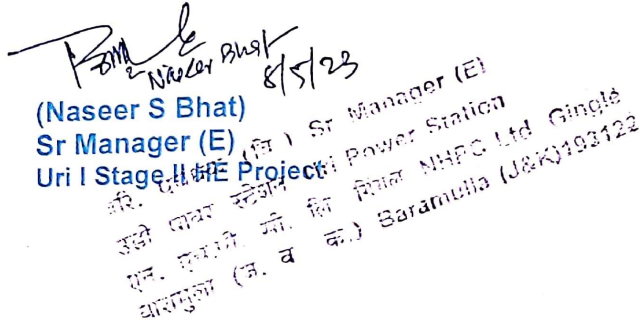 Naseer Bhat
8/5/23
(Naseer S Bhat)
Sr Manager (E)
Uri I Stage II HE Project
वरि. (वि) Sr Manager (E)
उड़ी पावर स्टेशन Uri Power Station
एन. एच.पी. सी. लि गिंगल NHPC Ltd Gingle
बारामुला (ज. व क.) Baramulla (J&K)193122